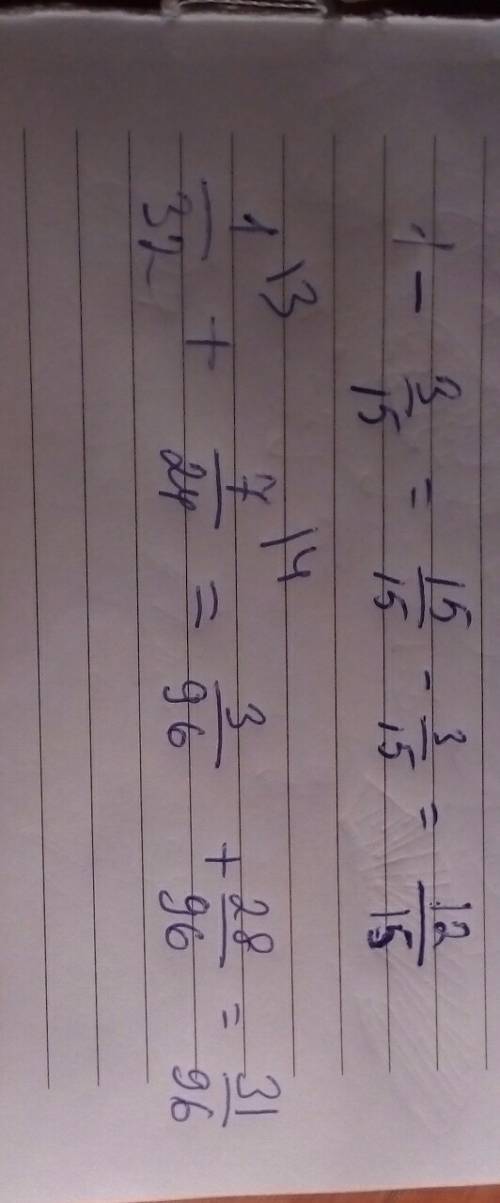 1 - 3/15 = 15/15 - 3/15 = 12/15
1\3/32 + 7\4/24 = 3/96 + 28/96 = 31/96